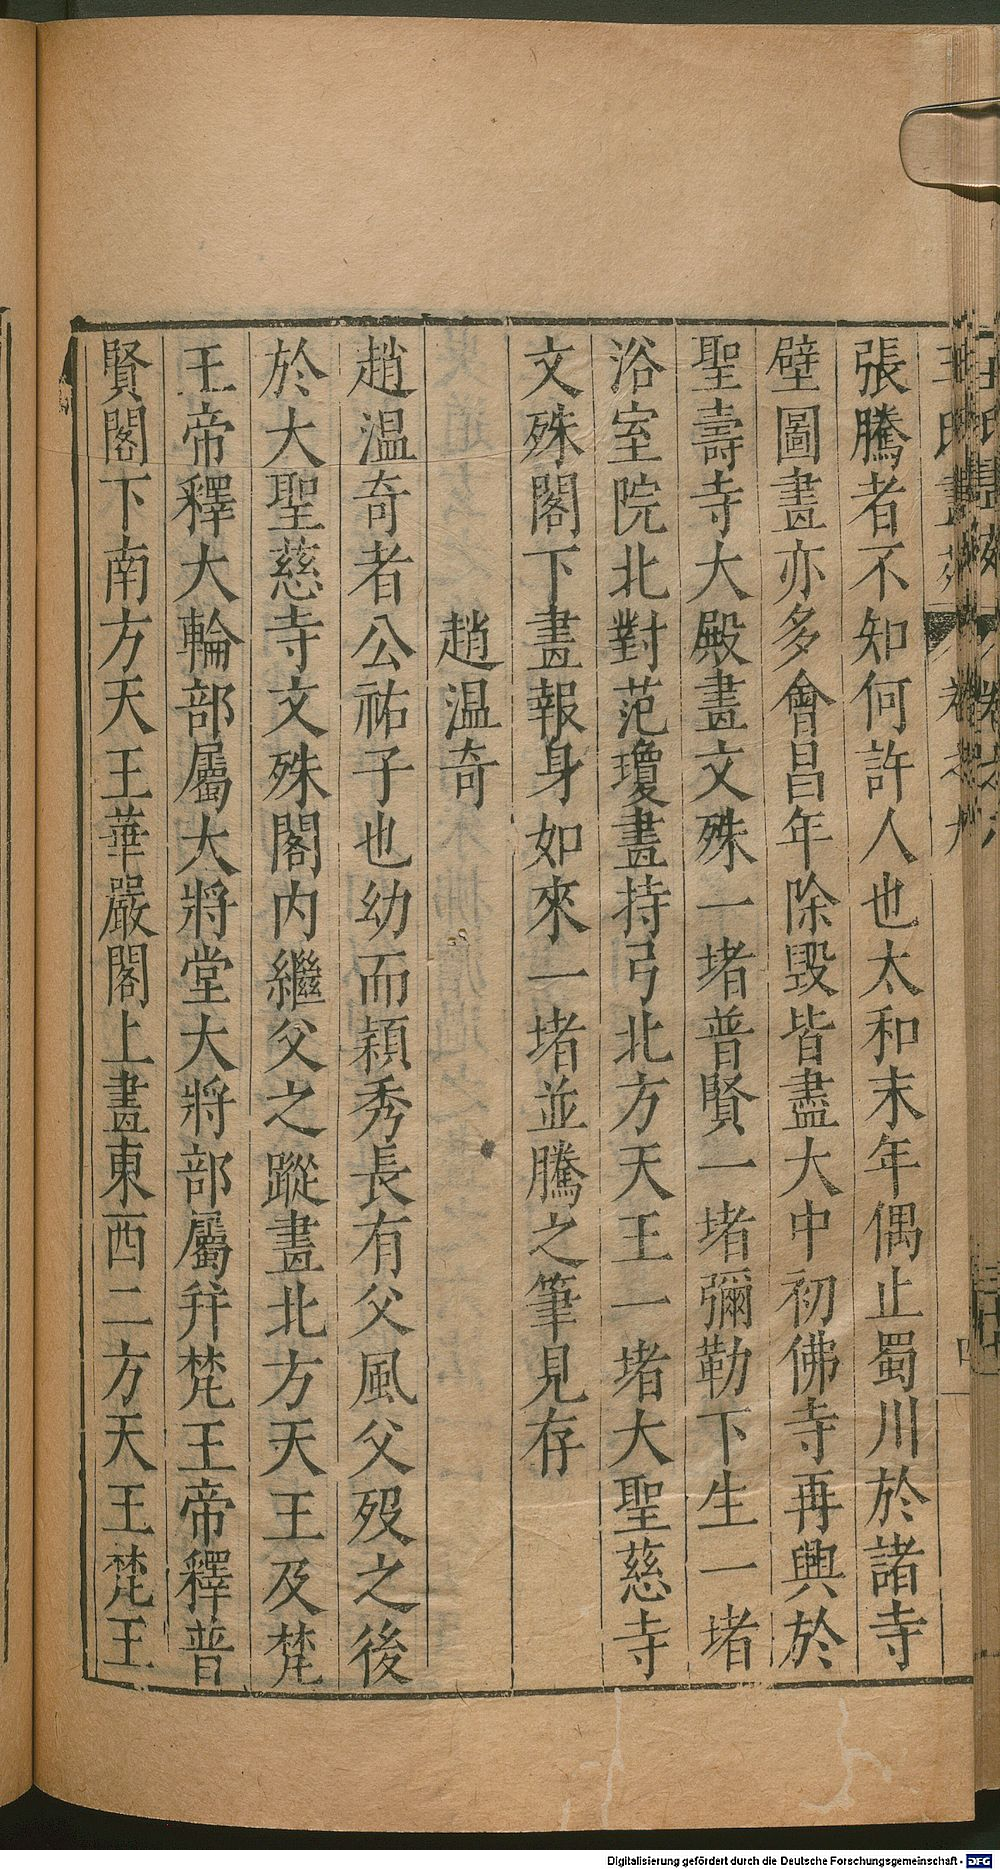 張騰者不知何許人也太和末年偶止蜀川於諸寺
壁圖畫亦多會昌年除毀皆盡大中初佛寺再興於
聖壽寺大殿畫文殊一堵普賢一堵彌勒下生一堵
浴室院北對范瓊畫持弓北方天王一堵大聖慈寺
文殊閣下畫報身如來一堵並騰之筆見存
趙温奇
趙温奇者公祐子也幼而穎秀長有父風父歿之後
於大聖慈寺文殊閣内繼父之蹤畫北方天王及梵
王帝釋大輪部屬大將堂大將部屬并梵王帝釋普
賢閣下南方天王華嚴閣上畫東西二方天王梵王
Digitalisierung gefördert durch die Deutsche Forschungsgemeinschaft - DFG